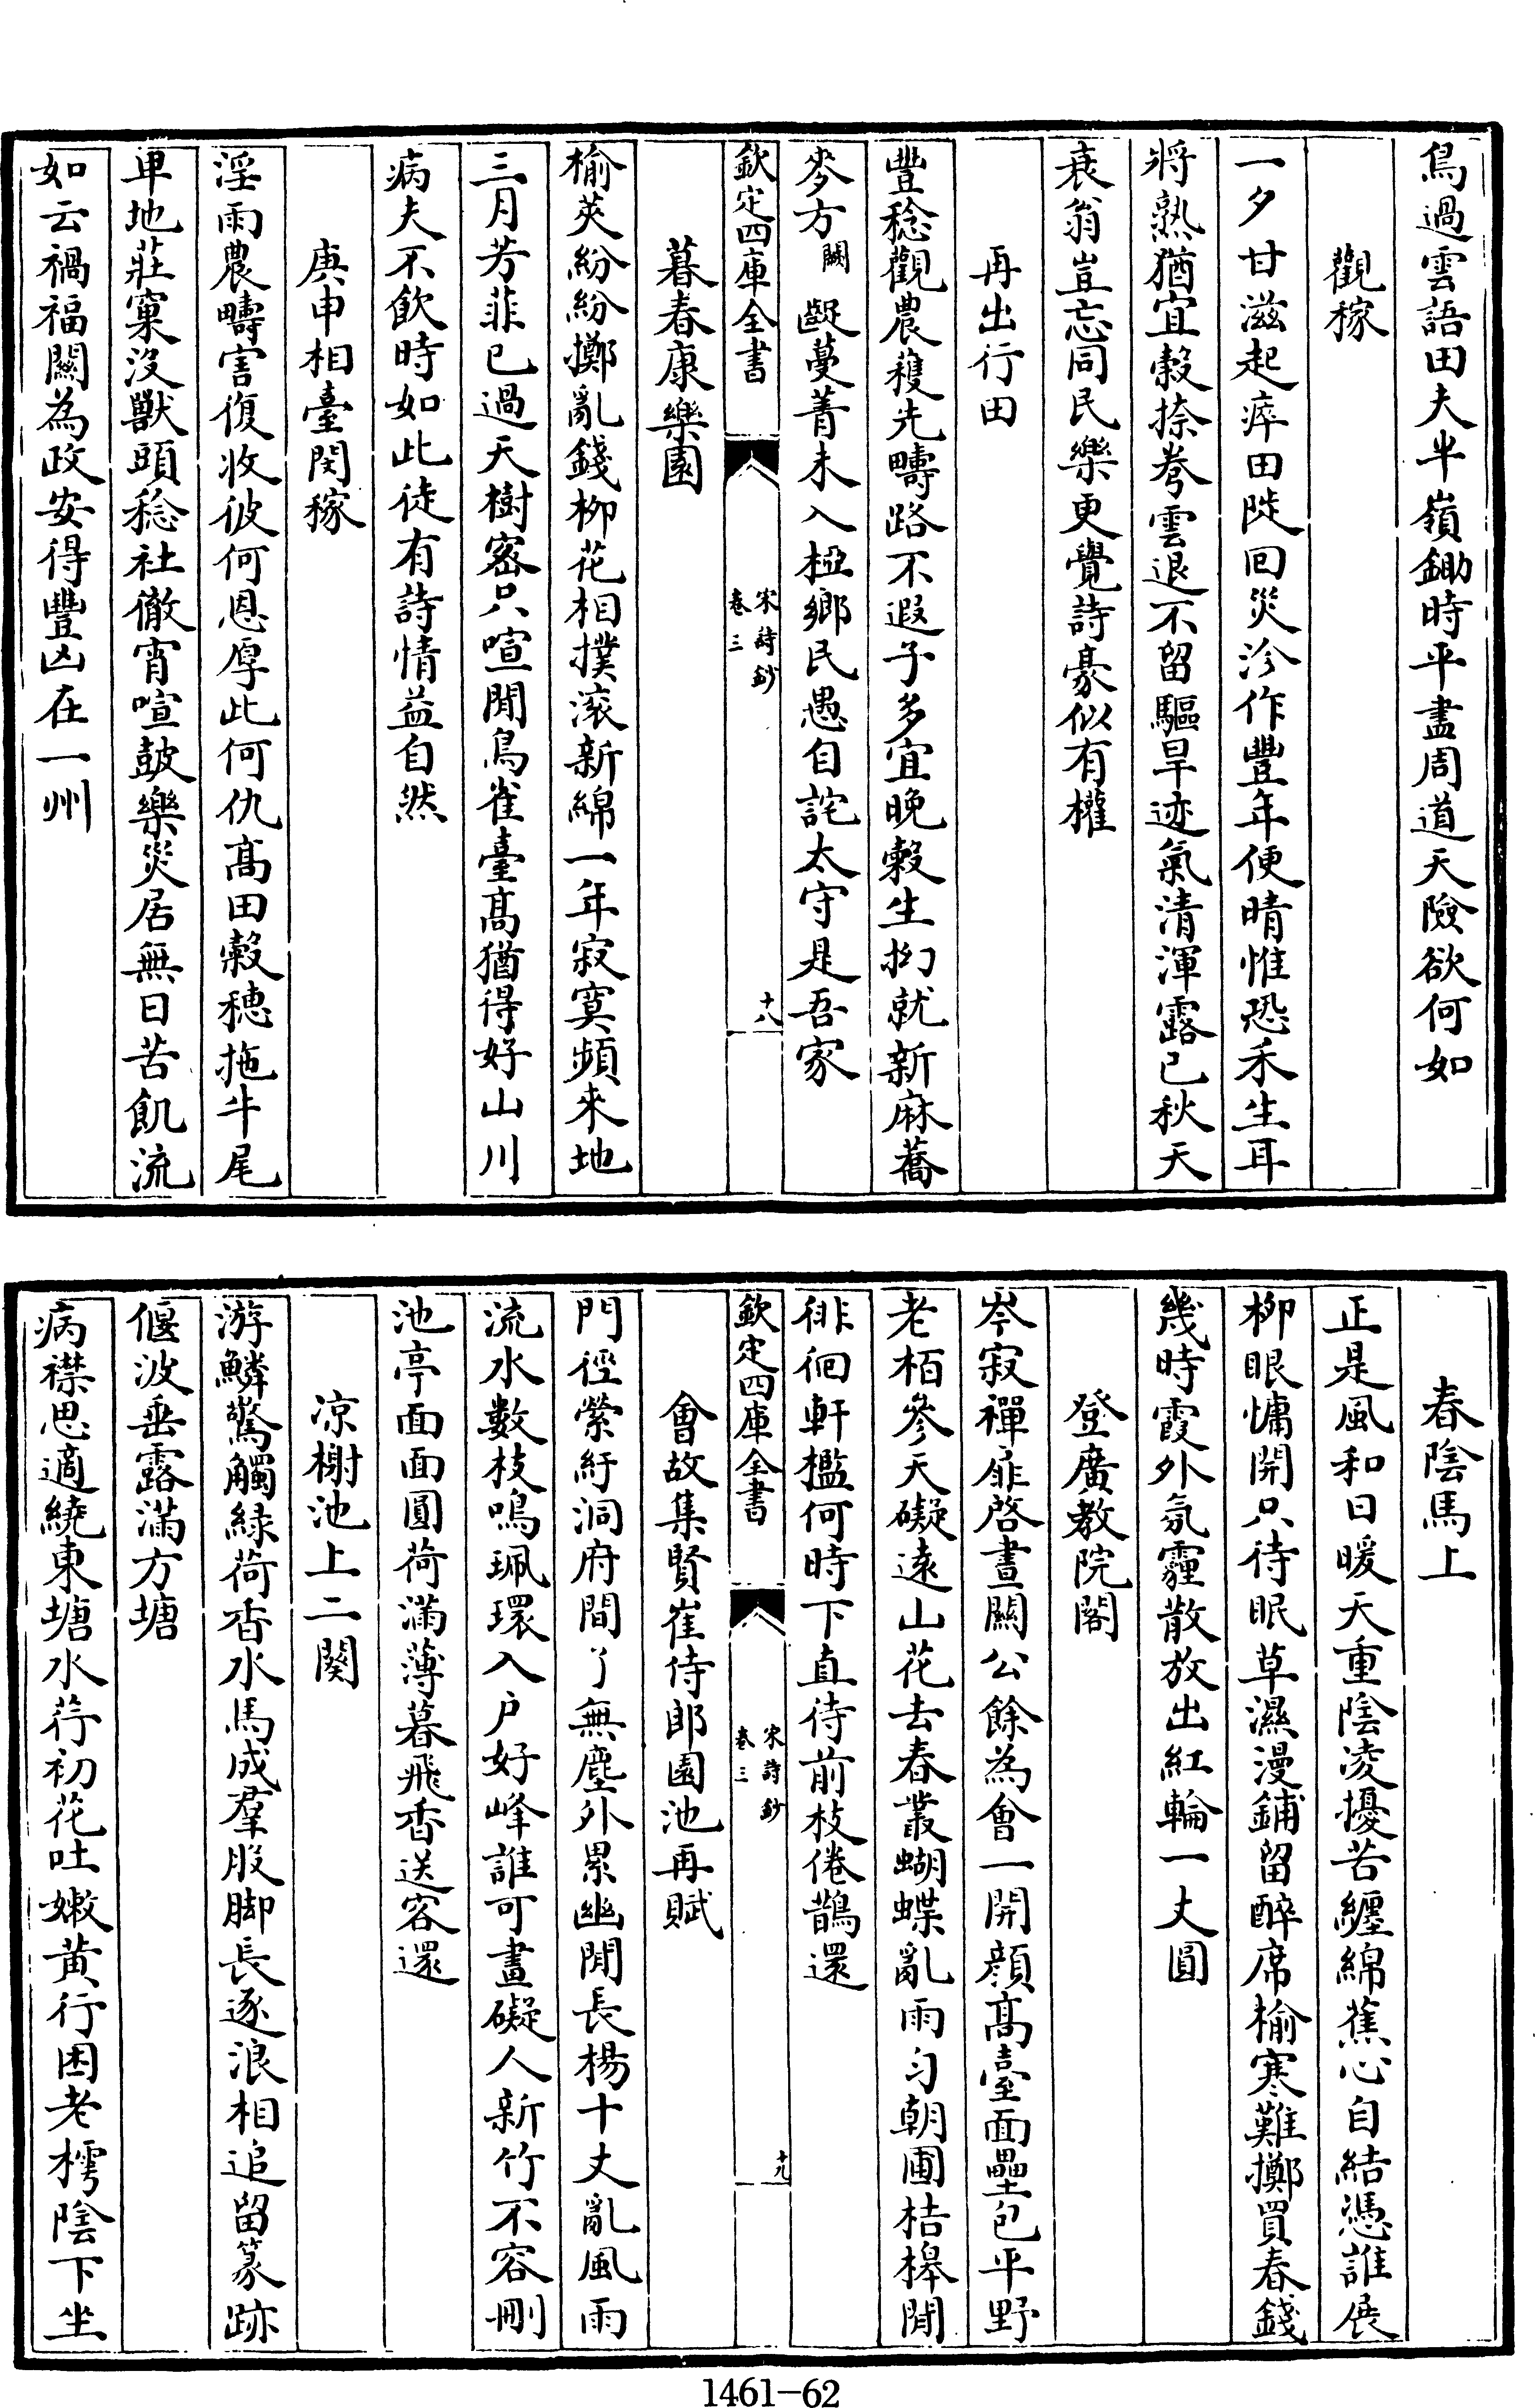 鳥過雲語田夫半嶺鋤時平盡周道天險欲何如
觀稼
一夕甘滋起瘁田陡回災沴作豐年便晴惟恐禾生耳
將熟猶宜穀捺拳雲退不留驅旱迹氣清渾露已秋天
衰翁豈忘同民樂更覺詩豪似有權
再出行田
豐稔觀農穫先疇路不遐子多宜晚穀生拗就新麻蕎
麥方闕齔蔓菁未入椏鄉民愚自詫太守是吾家
欽定四庫全書
宋詩鈔
卷三
十八
暮春康樂園
榆莢紛紛擲亂錢柳花相撲滚新綿一年寂寞頻來地
三月芳菲已過天樹密只喧閒鳥雀臺高猶得好山川
病夫不飲時如此徒有詩情益自然
庚申相臺閔稼
淫雨農疇害復收彼何恩厚此何仇高田穀穗拖牛尾
卑地莊窠没獸頭稔社徹宵喧皷樂災居無日苦飢流
如云禍福闗為政安得豐凶在一州
春陰馬上
正是風和日暖天重陰凌擾苦纒綿蕉心自結憑誰展
柳眼慵開只待眠草濕漫鋪留醉席榆寒難擲買春錢
幾時霞外氛霾散放出紅輪一丈圓
登廣教院閣
岑寂禪扉啓晝闗公餘為會一開顔高臺面壘包平野
老栢參天礙遠山花去春叢蝴蝶亂雨匀朝圃桔橰閒
徘徊軒檻何時下直待前枝倦鵲還
欽定四庫全書
宋詩鈔
卷三
十九
會故集賢崔侍郎園池再賦
門徑縈紆洞府間了無塵外累幽閒長楊十丈亂風雨
流水數枝鳴珮環入户好峰誰可畫礙人新竹不容刪
池亭面面圓荷滿薄暮飛香送客還
凉榭池上二闋
游鱗驚觸緑荷香水馬成羣股脚長逐浪相追留篆跡
偃波垂露滿方塘
病襟思適繞東塘水荇初花吐嫩黄行困老樗陰下坐
1461-62